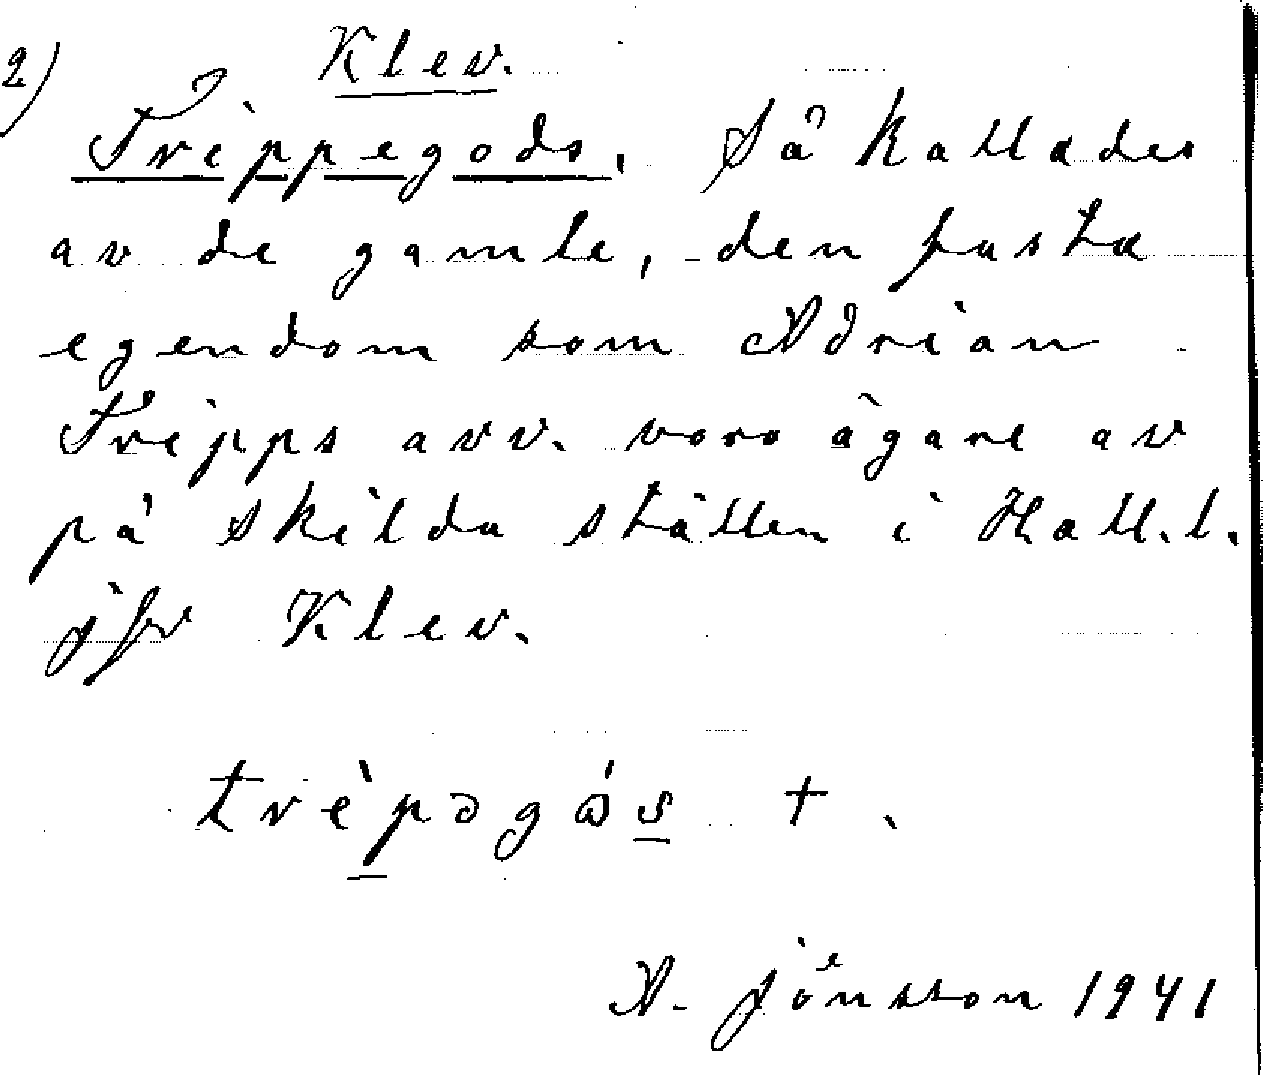 2) Klev.
Trippegods. Så kallades
av de gamle, den fasta
egendom som Adrian
Tripps arv. voro ägare av
på skilda ställen i Hall.l.
jfr Klev.
trìpəgós +.
A. Jönsson 1941